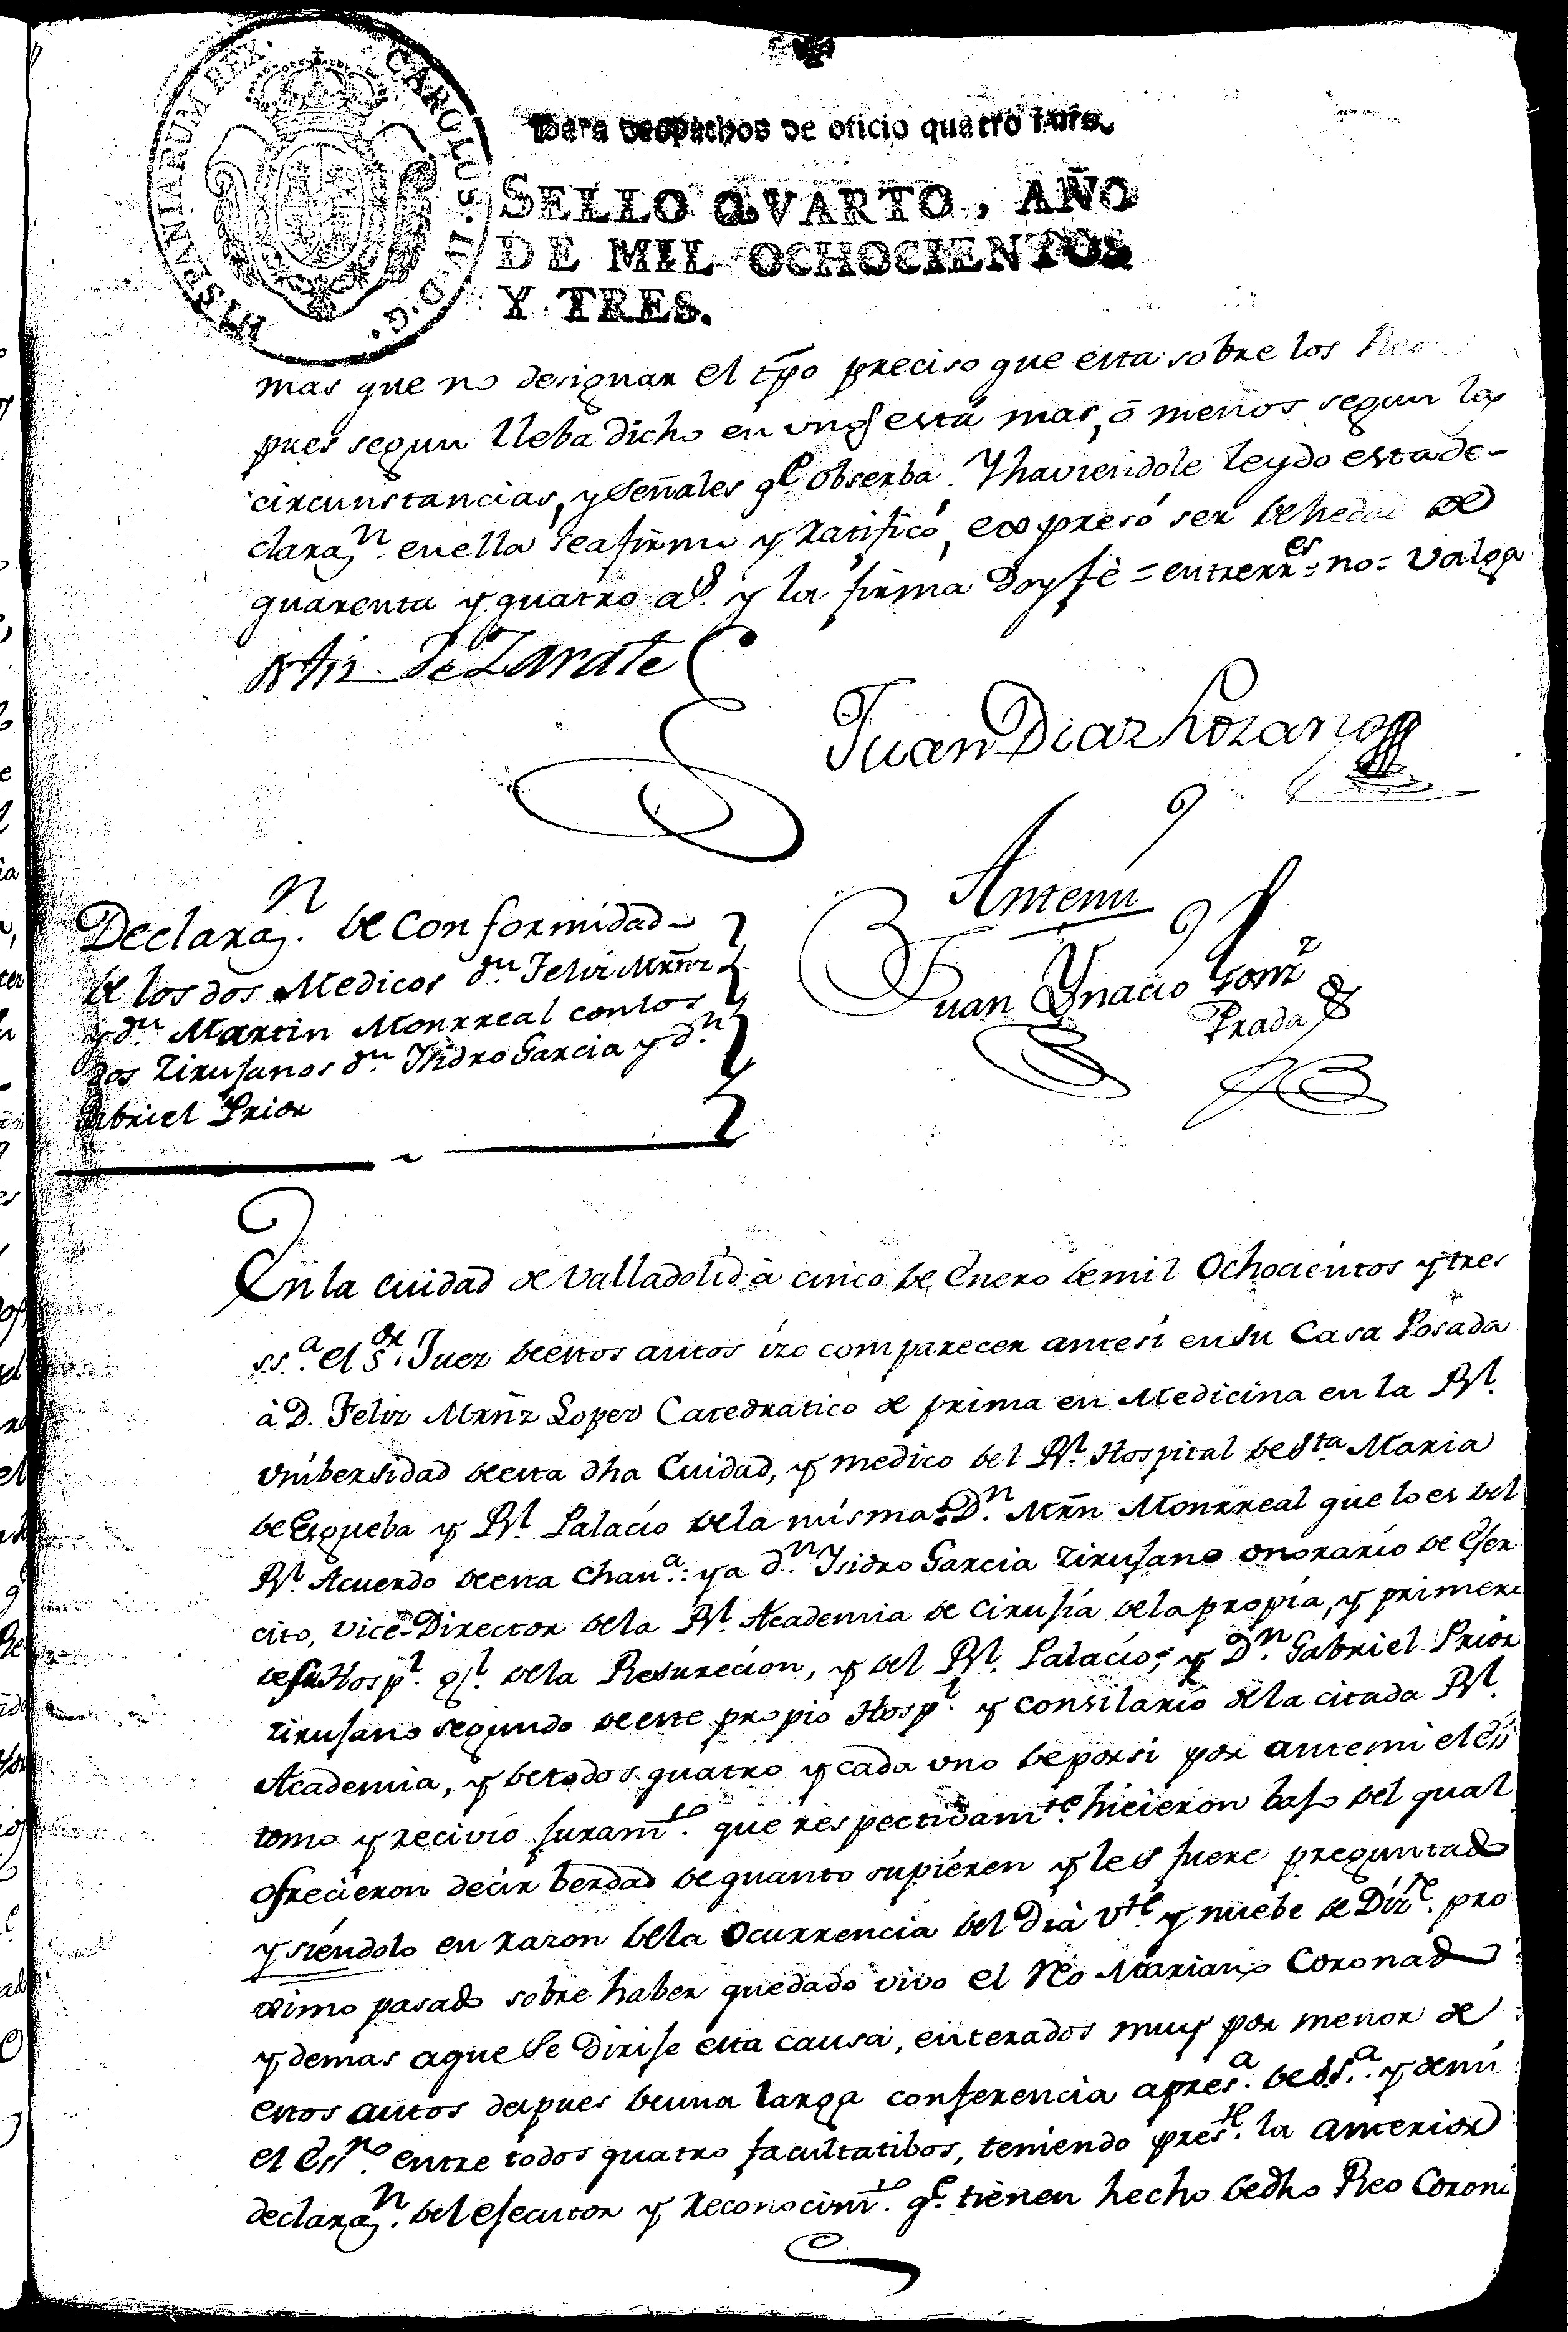 HISPANIARUM REX. CAROLUS IV D. G.
Para despachos de oficio quatro mrs.
SELLO QVARTO, AÑO
DE MIL OCHOCIENTOS
Y TRES.
mas que no designar el tpō preciso que esta sobre los Reo
pues segun lleba dicho en unos está mas, ó menos segun las
circunstancias, y señales qe. obserba. Y haviendole leydo esta de-
claraon. en ella se afirmó y ratificó, expresó ser de hedad de
quarenta y quatro as. y la firma Doy fé = entrerres = no = valga
de Zarate
Juan Diaz Lozano
Antemi
Juan Ygnacio Gonz
Prada
Declaraon. de conformidad
de los dos Medicos dn. Felix Mrñz
y dn. Martin Monrreal con los
dos Zirujanos dn. Isidro Garcia y dn.
Gabriel Prior
En la ciudad de Valladolid à cinco de Enero de mil Ochocientos y tres
ssa. el Sor. Juez de estos autos izo comparecer ante si en su Casa Posada
à D. Felix Mrñz Lopez Catedratico de prima en Medicina en la Rl.
Unibersidad de esta dha Ciudad, y medico del Rl. Hospital de Sta. Maria
de Esgueba y Rl. Palacio de la misma: Dn. Mrn Monrreal que lo es del
Rl. Acuerdo de esta Chana.: y a dn. Isidro Garcia Zirujano onorario de Exer
cito, Vice-Director de la Rl. Academia de Cirujía de la propia, y primero
de su Hospl. gl. de la Resurecion, y del Rl. Palacio; y Dn. Gabriel Prior
Zirujano segundo de este propio Hospl. y consilario de la citada Rl.
Academia, y de todos quatro y cada uno de por si por ante mi el Ess
tomo y recivio juramto. que respectivamte. hicieron bajo del qual
ofrecieron decir berdad de quanto supieren y les fuere preguntado
y siendolo en razon de la ocurrencia del dia vte. y nuebe de Dize. pro
ximo pasado sobre haber quedado vivo el Reo Mariano Coronado
y demas a que se dirije esta causa, enterados muy por menor de
estos autos depues de una larga conferencia a presa. de S.Sa. y de mi
el Essno. entre todos quatro facultatibos, teniendo preste. la anterior
declaraon. del ejecutor y reconocimto. qe. tienen hecho de dho Reo Corona